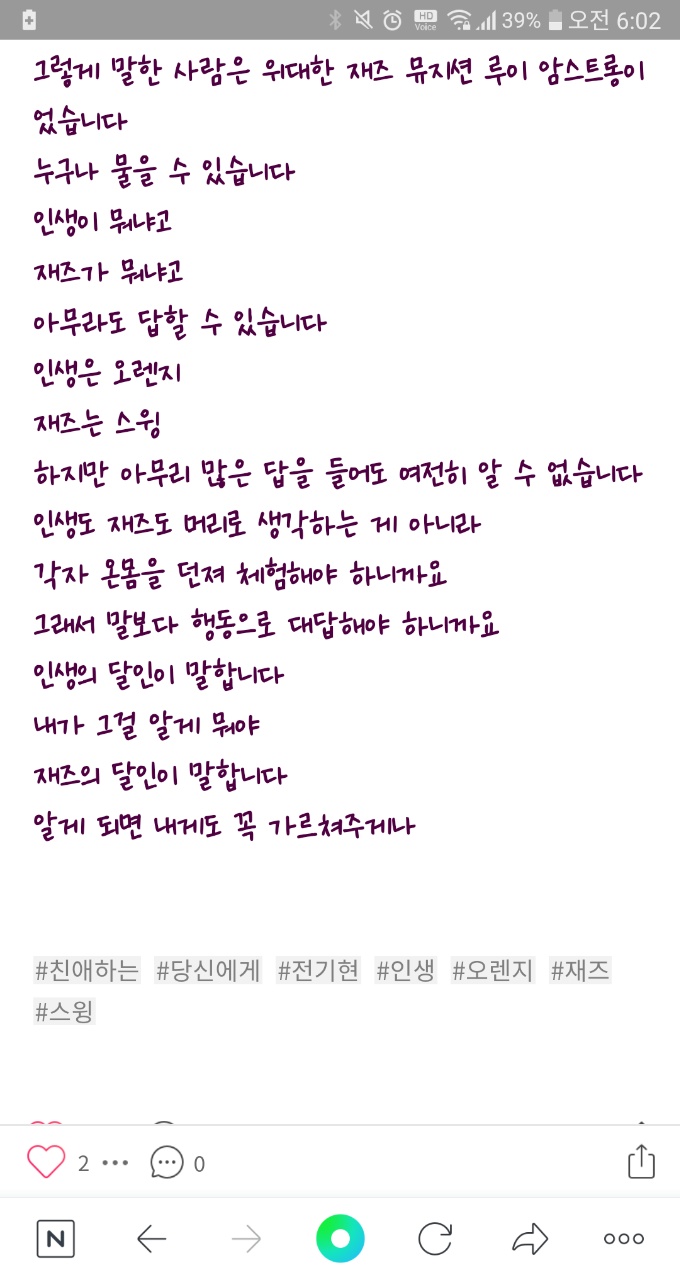 HD Voice 39% 오전 6:02
그렇게 말한 사람은 위대한 재즈 뮤지션 루이 암스트롱이
었습니다
누구나 물을 수 있습니다
인생이 뭐냐고
재즈가 뭐냐고
아무라도 답할 수 있습니다
인생은 오렌지
재즈는 스윙
하지만 아무리 많은 답을 들어도 여전히 알 수 없습니다
인생도 재즈도 머리로 생각하는 게 아니라
각자 온몸을 던져 체험해야 하니까요
그래서 말보다 행동으로 대답해야 하니까요
인생의 달인이 말합니다
내가 그걸 알게 뭐야
재즈의 달인이 말합니다
알게 되면 내게도 꼭 가르쳐주게나
#친애하는 #당신에게 #전기현 #인생 #오렌지 #재즈
#스윙
2 0
N